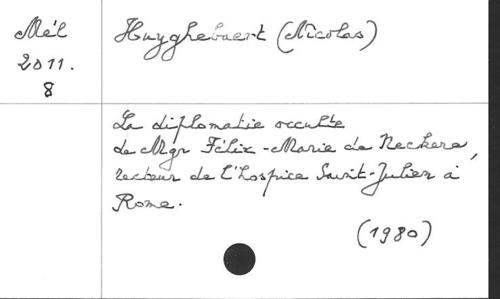 Mél
2011.
8
Huyghebaert (Nicolas)
La diplomatie occulte
de Mgr Félix-Marie de Neckere,
recteur de l'hospice Saint-Julien à
Rome.
(1980)